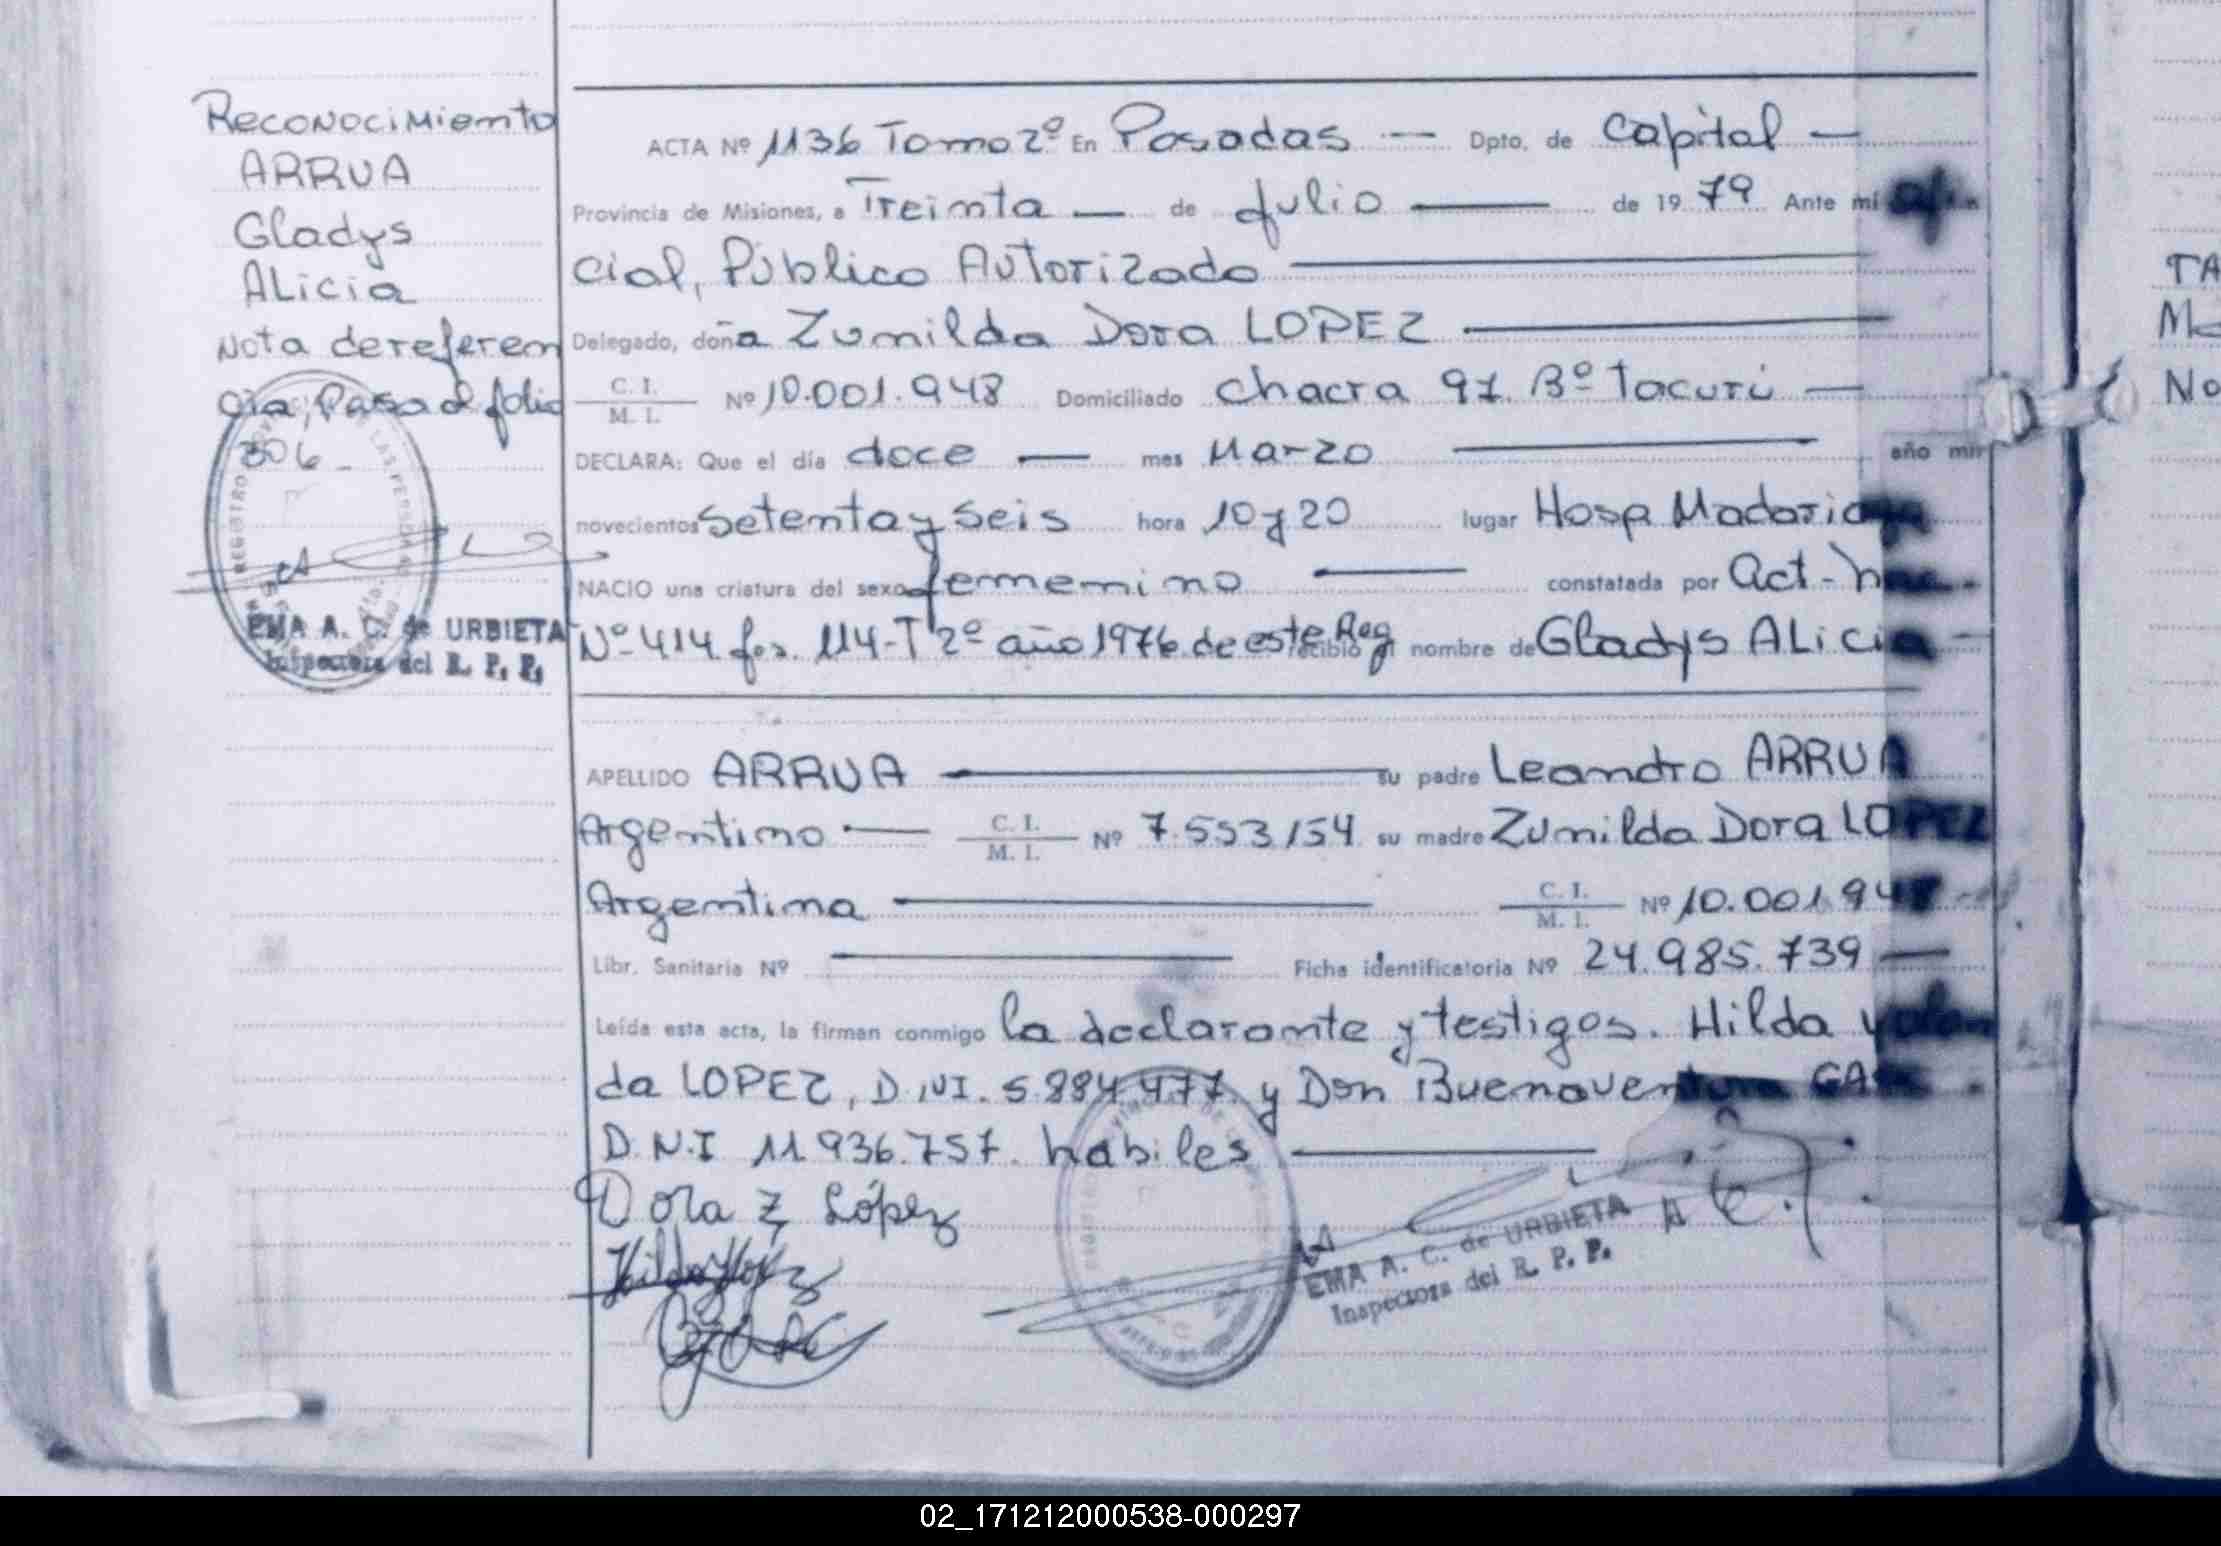 Reconocimiento
ARRUA
Gladys
ALicia
Nota de referen
cia, Pasa al folio
306-
EMA A. C. de URBIETA
Inspectora del R. P. P.
ACTA Nº 1136 Tomo 2º En Posadas — Dpto. de Capital —
Provincia de Misiones, a Treinta — de Julio — de 1979 Ante mí Ofi
cial, Público Autorizado
Delegado, doña Zunilda Dora LOPEZ
C. I. / M. I. Nº 10.001.948 Domiciliado Chacra 97. Bº Tacurú —
DECLARA: Que el día doce — mes Marzo — año mil
novecientos Setenta y Seis hora 10 y 20 lugar Hosp Madariaga
NACIO una criatura del sexo femenino — constatada por Act-nac.
Nº 414 fos. 114-T 2º año 1976 de este Reg recibió el nombre de Gladys ALicia —
APELLIDO ARRUA — su padre Leandro ARRUA
Argentino — C. I. / M. I. Nº 7.553.154 su madre Zunilda Dora LOPEZ
Argentina — C. I. / M. I. Nº 10.001.948
Libr. Sanitaria Nº — Ficha identificatoria Nº 24.985.739 —
Leída esta acta, la firman conmigo la declarante y testigos. Hilda Yolan
da LOPEZ, D.NI. 5.884.477. y Don Buenaventura
D.N.I 11.936.757. habiles —
Dora Z López
EMA A. C. de URBIETA
Inspectora del R. P. P.
TA
No
02_171212000538-000297